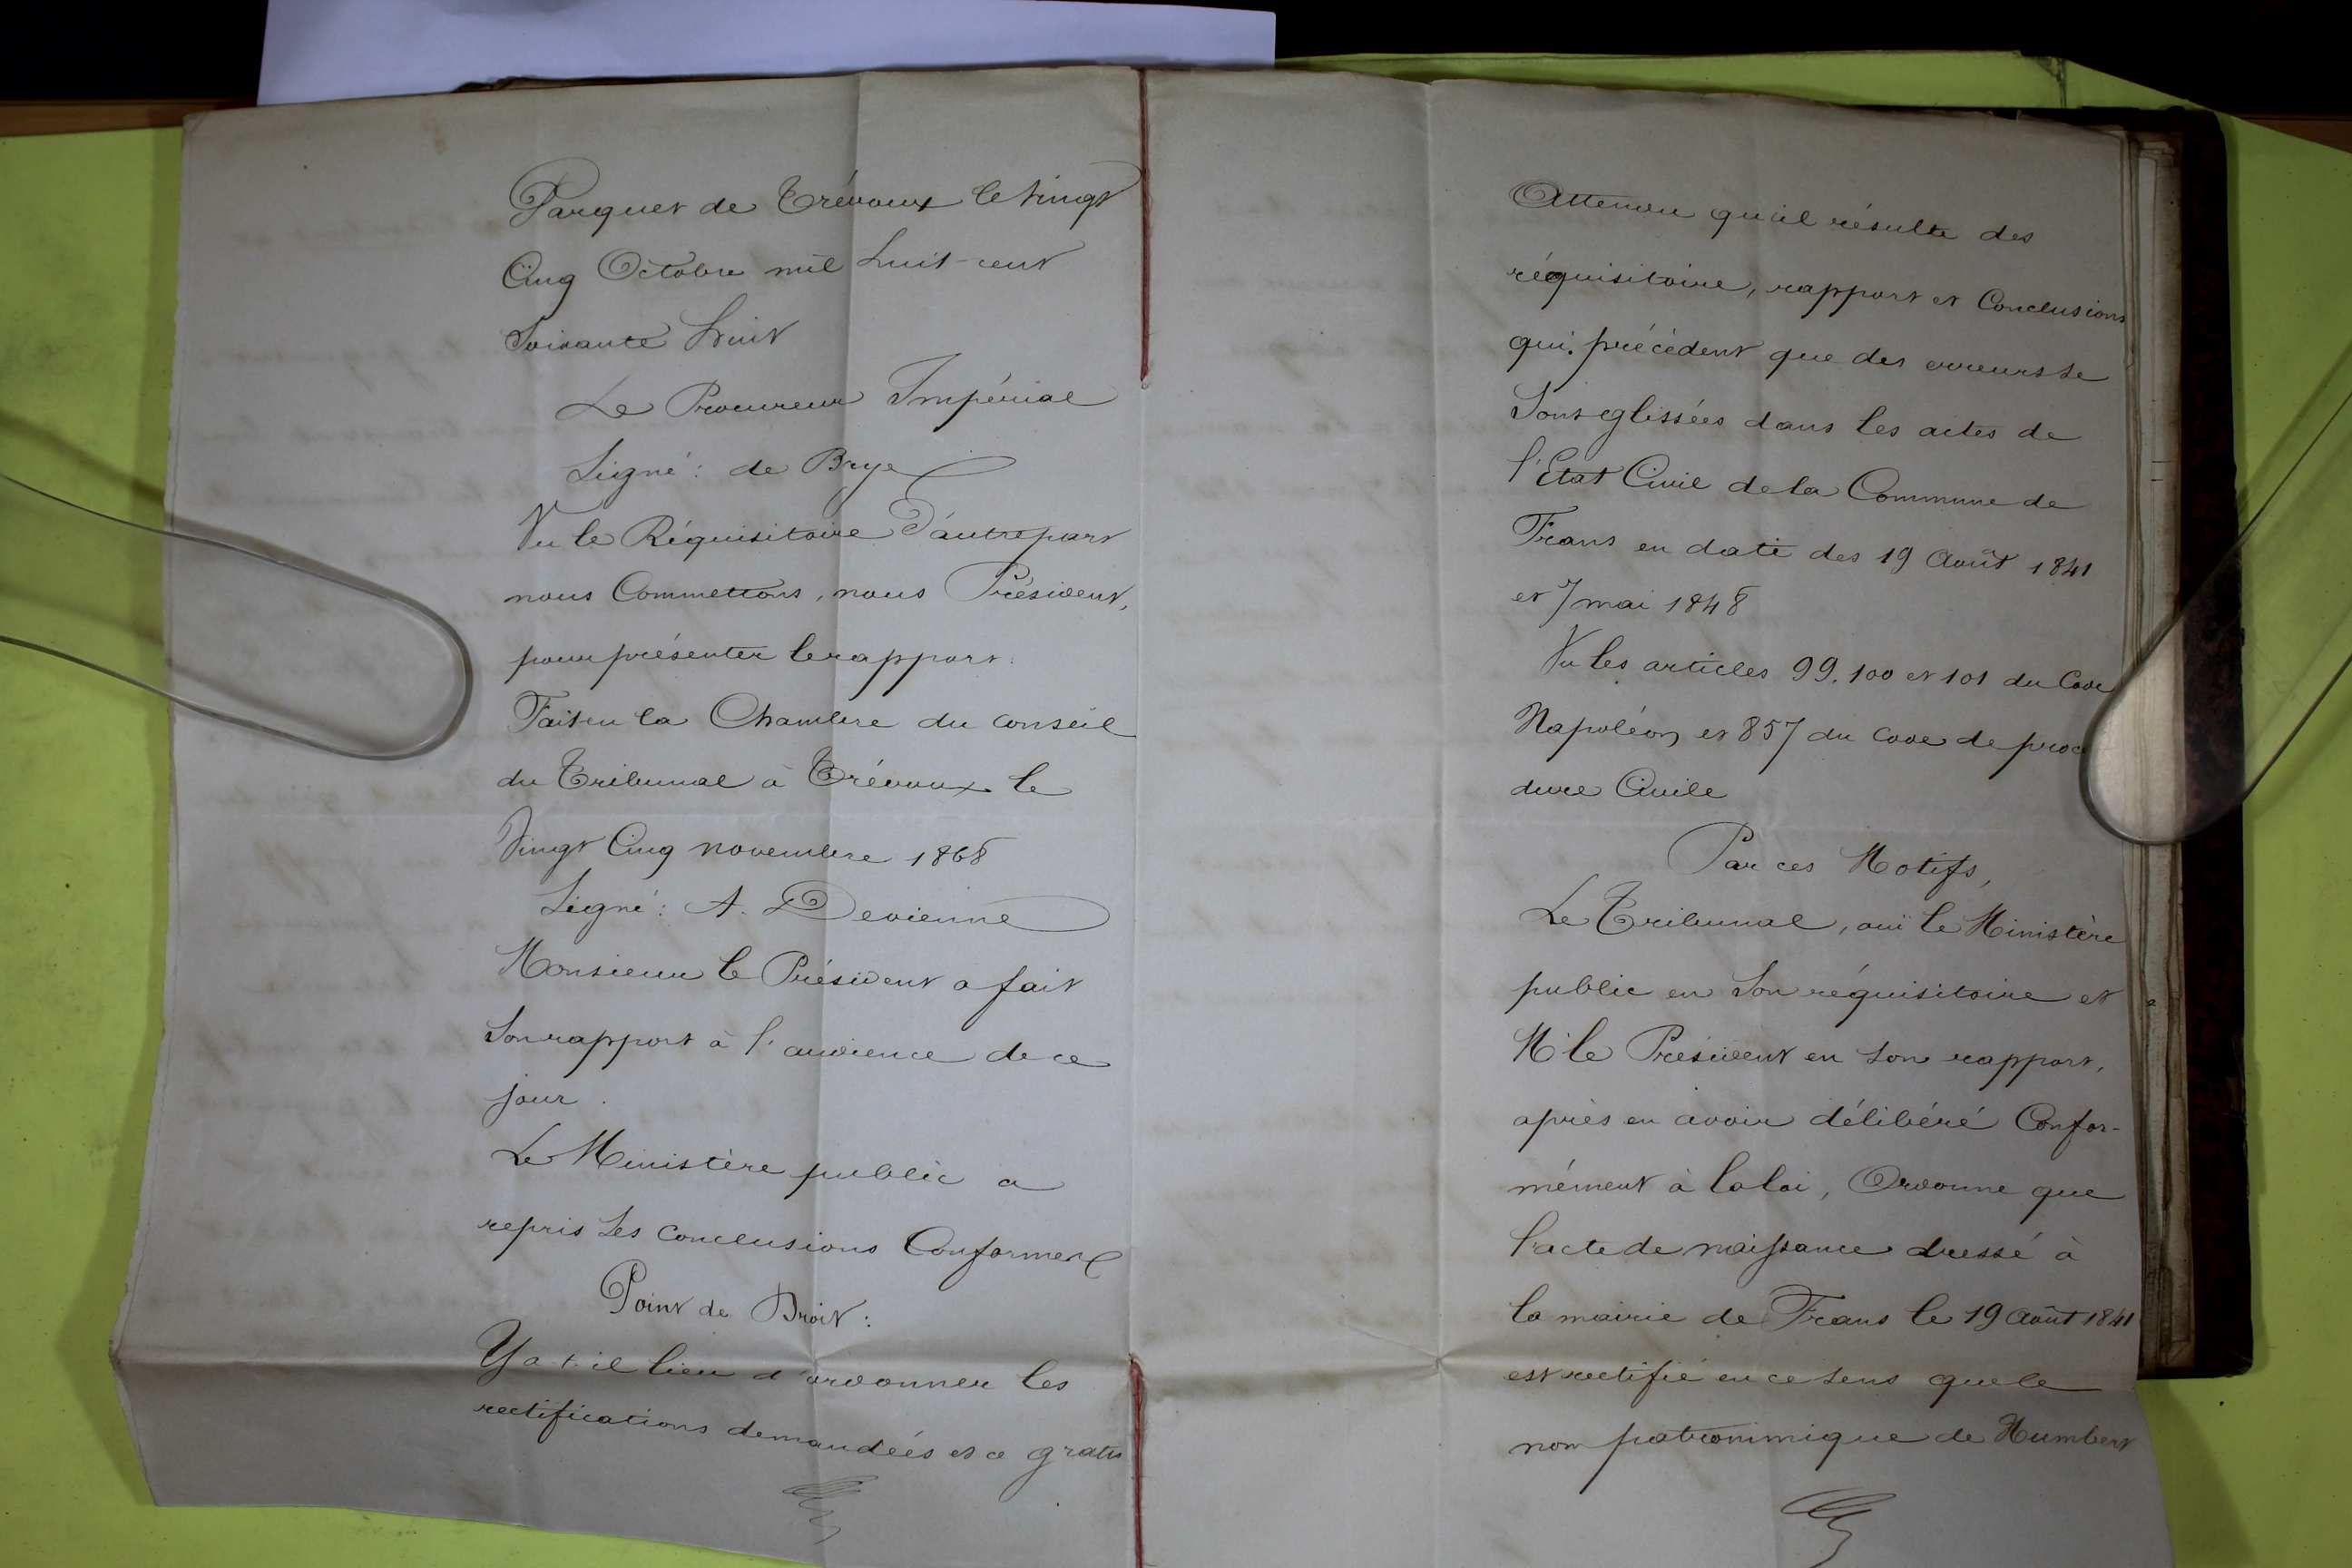 Parquet de Trévoux le vingt
Cinq Octobre mil huit-cent
Soixante huit
Le Procureur Impérial
Signé : de Brye
Vu le Réquisitoire d'autre part
nous Commettons, nous Président,
pour présenter le rapport.
Fait en la Chambre du conseil
du Tribunal à Trévoux le
Vingt Cinq novembre 1868
Signé : A. Devienne
Monsieur le Président a fait
Son rapport à l'audience de ce
jour.
Le Ministère public a
repris Ses Conclusions Conformes
Point de Droit :
Y a-t-il lieu d'ordonner les
rectifications demandées et ce gratis
Attendu qu'il résulte des
réquisitoire, rapport et Conclusions
qui précèdent que des erreurs se
Sont glissées dans les actes de
l'Etat Civil de la Commune de
Frans en date des 19 Août 1841
et 7 mai 1848
Vu les articles 99. 100 et 101 du Code
Napoléon et 857 du code de procé
dure Civile
Par ces Motifs,
Le Tribunal, ouï le Ministère
public en Son réquisitoire et
M le Président en Son rapport,
après en avoir délibéré Confor-
mément à la loi, Ordonne que
l'acte de naissance dressé à
la mairie de Frans le 19 Août 1841
est rectifié en ce Sens que le
nom patronimique de Humbert